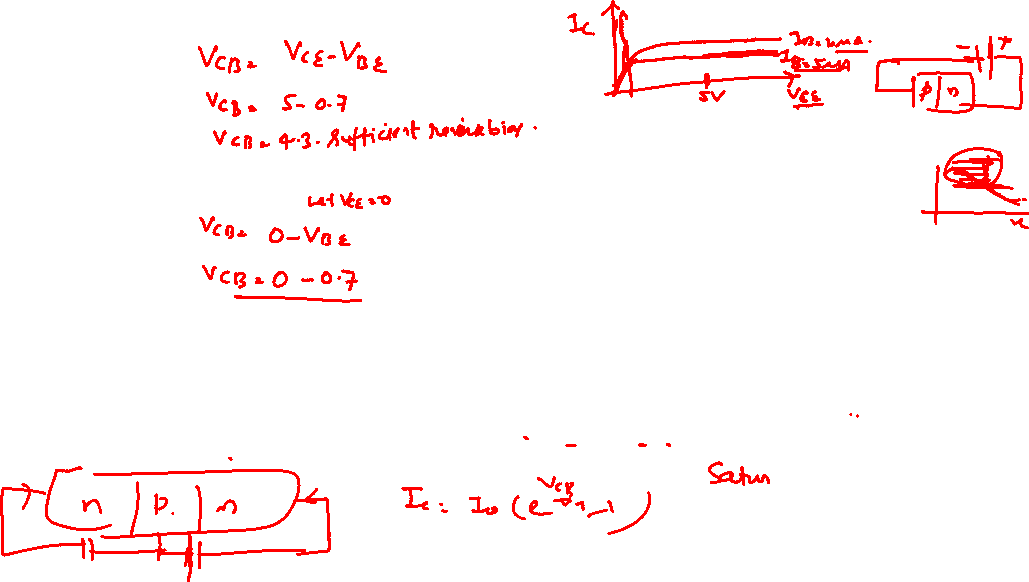 VCB = VCE - VBE
VCB = 5 - 0.7
VCB = 4.3. Sufficient reverse bias.
Let VCE = 0
VCB = 0 - VBE
VCB = 0 - 0.7
IC
5V
VCE
- +
p n
n p. n
Ic = Io (e -1)
Satun